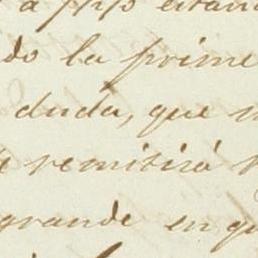 estan
do la prime
duda, que
remitirá
grande en